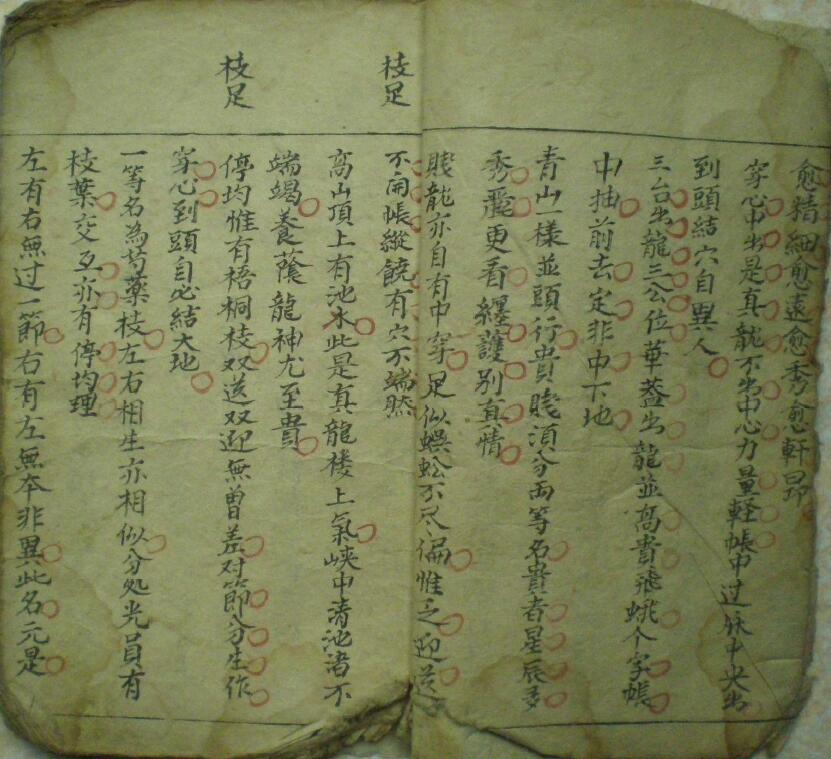 愈精細愈遠愈秀愈軒昂
穿心中出是真龍不出中心力量軽帳中过脉中央出
到頭結穴自異人
三台出龍三公位華蓋出龍並高貴飛蛾个字帳
中抽前去定非中下地
青山一樣並頭行貴賤須分両等名貴者星辰多
秀麗更看纏護别真情
賤龍亦自有中穿足似蜈蚣不尽偏惟乏迎送
不開帳縱饒有穴不端然
枝足
高山頂上有池水此是真龍楼上氣峡中清池渚不
端竭養蔭龍神尤至貴
停均惟有梧桐枝双送双迎無曾差对節分生作
枝足
穿心到頭自必結大地
一等名為芍藥枝左右相生亦相似分処光員有
枝葉交互亦有停均理
左有右無过一節右有左無本非異此名元是